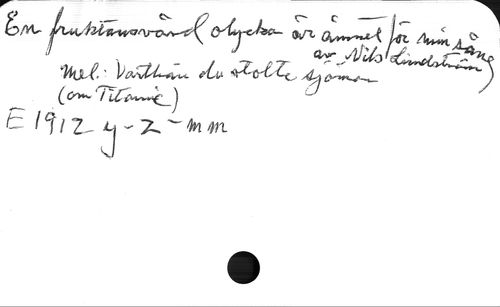 En fruktansvärd olycka är ämnet för min sång
av Nils Lindström)
Mel.: Varthän du stolte sjöman
(om Titanic)
E 1912 y-z-mm